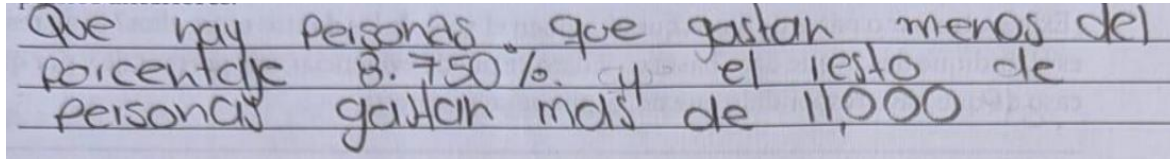 Que hay personas que gastan menos del
porcentaje 8.750%. y el resto de
personas gastan más de 11,000